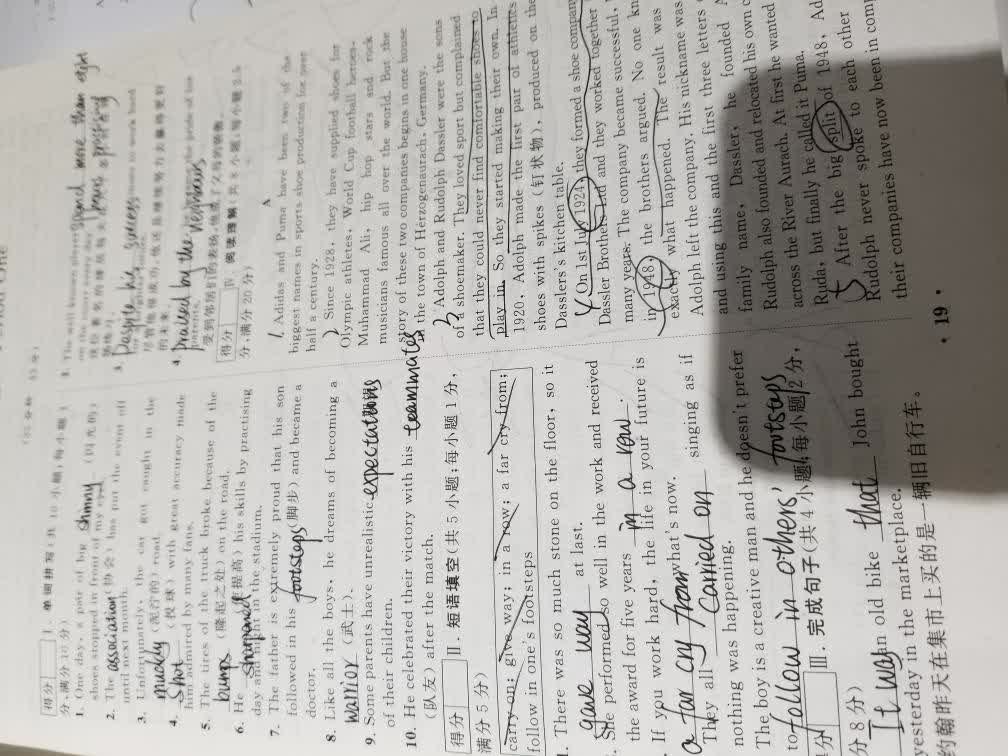 得分
Ⅰ. 单词拼写(共 10 小题;每小题 1
分,满分 10 分)
1. One day, a pair of big shinny (闪光的)
shoes stopped in front of my
2. The association (协会) has put the event off
until next month.
3. Unfortunately, the car got caught in the
mucky (泥泞的) road.
4. Shot (投球) with great accuracy made
him admired by many fans.
5. The tires of the truck broke because of the
bumps (隆起之处) on the road.
6. He sharpened (提高) his skills by practising
day and night in the stadium.
7. The father is extremely proud that his son
followed in his footsteps (脚步) and became a
doctor.
8. Like all the boys, he dreams of becoming a
warrior (武士).
9. Some parents have unrealistic expectations
of their children.
10. He celebrated their victory with his teammates
(队友) after the match.
得分
Ⅱ. 短语填空(共 5 小题;每小题 1 分,
满分 5 分)
carry on; give way; in a row; a far cry from;
follow in one's footsteps
1. There was so much stone on the floor, so it
gave way at last.
She performed so well in the work and received
the award for five years in a row.
. If you work hard, the life in your future is
a far cry from what's now.
They all carried on singing as if
nothing was happening.
The boy is a creative man and he doesn't prefer
to follow in others' footsteps
分
Ⅲ. 完成句子(共 4 小题;每小题 2 分,
分 8 分)
It was an old bike that John bought
yesterday in the marketplace.
约翰昨天在集市上买的是一辆旧自行车。
3. Despite his success
4. Praised by the neighbours
得分
Ⅳ. 阅读理解(共 8 小题;每小题 2.5
分,满分 20 分)
A
1. Adidas and Puma have been two of the
biggest names in sports shoe production for over
half a century.
2 Since 1928, they have supplied shoes for
Olympic athletes, World Cup football heroes,
Muhammad Ali, hip hop stars and rock
musicians famous all over the world. But the
story of these two companies begins in one house
in the town of Herzogenaurach, Germany.
3 Adolph and Rudolph Dassler were the sons
of a shoemaker. They loved sport but complained
that they could never find comfortable shoes to
play in. So they started making their own. In
1920, Adolph made the first pair of athletics
shoes with spikes (钉状物), produced on the
Dasslers's kitchen table.
4 On 1st July 1924, they formed a shoe company
Dassler Brothers Ltd and they worked together
many years. The company became successful,
in 1948, the brothers argued. No one kn
exactly what happened. The result was
Adolph left the company. His nickname was
and using this and the first three letters
family name, Dassler, he founded A
Rudolph also founded and relocated his own c
across the River Aurach. At first he wanted
Ruda, but finally he called it Puma.
5 After the big split of 1948, Ad
Rudolph never spoke to each other
their companies have now been in comp
· 19 ·